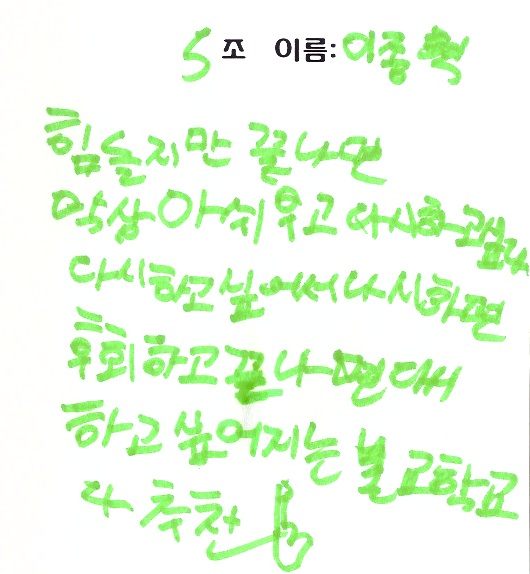 5 조 이름: 이종혁
힘들지만 끝나면
막상 아쉬우고 다시하고싶다
다시하고 싶어서 다시하면
후회하고 끝나면 다시
하고 싶어지는 불교학교
다 추천